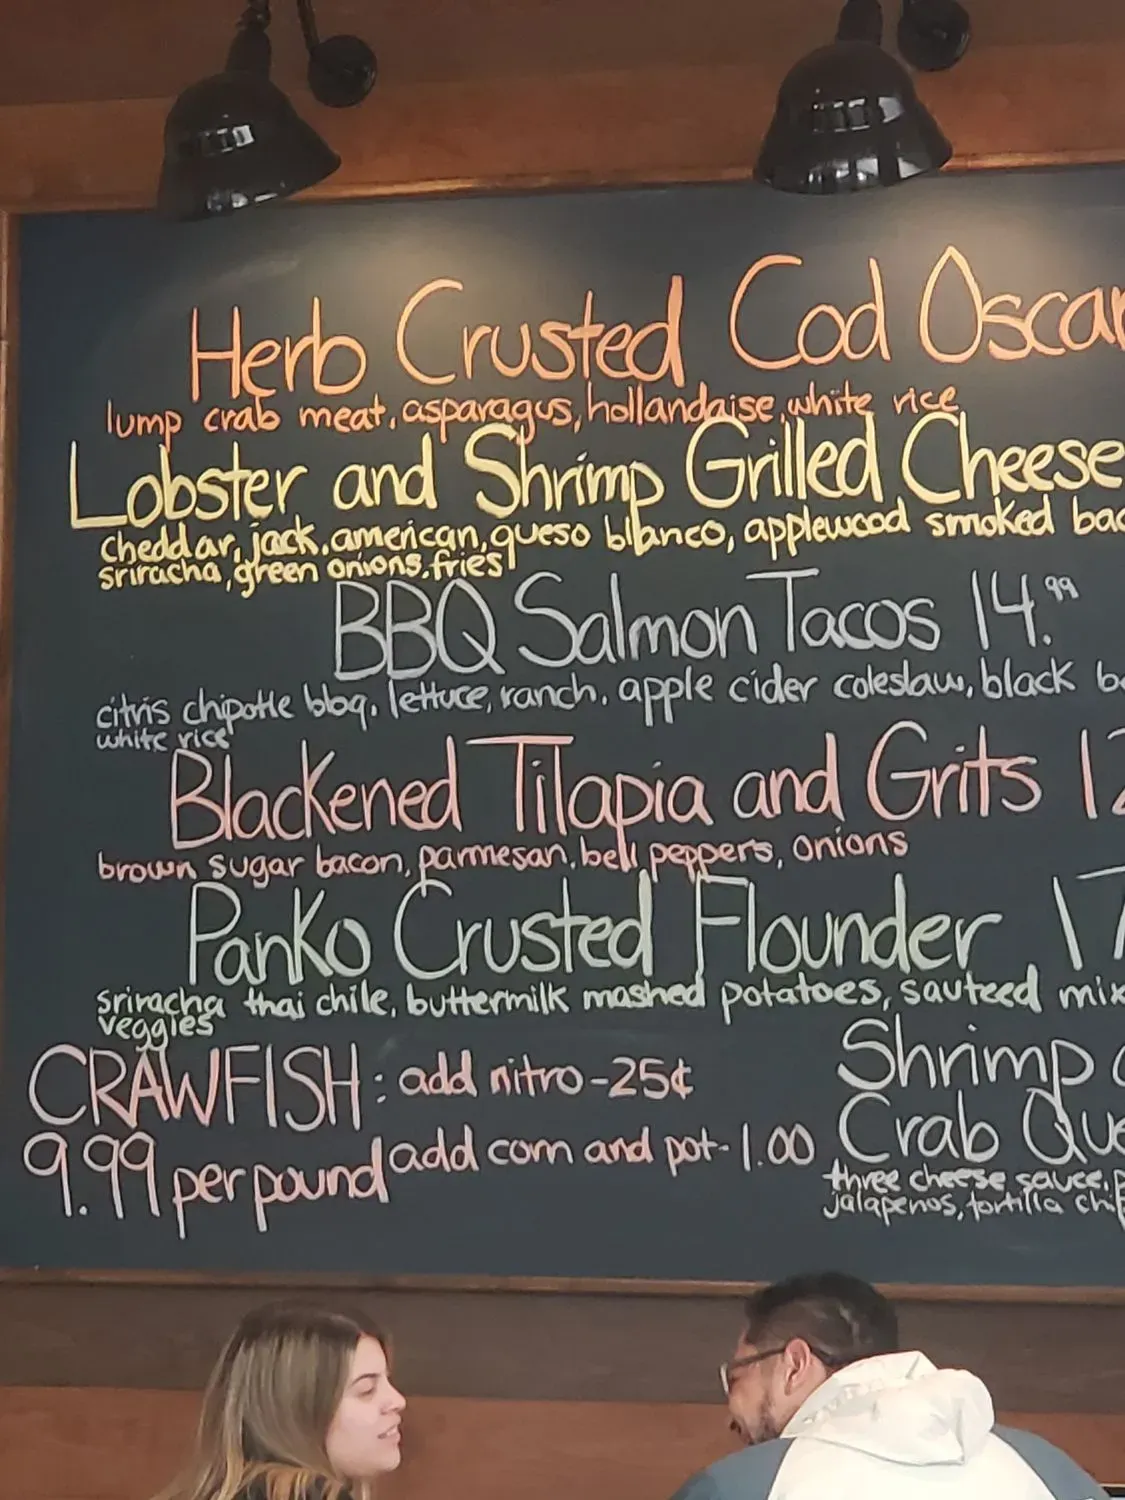 Herb Crusted Cod Oscar
lump crab meat, asparagus, hollandaise, white rice
Lobster and Shrimp Grilled Cheese
cheddar, jack, american, queso blanco, applewood smoked
sriracha, green onions, fries
BBQ Salmon Tacos 14.99
citris chipotle bbq, lettuce, ranch, apple cider coleslaw, black
white rice
Blackened Tilapia and Grits
brown sugar bacon, parmesan, bell peppers, onions
Panko Crusted Flounder
sriracha thai chile, buttermilk mashed potatoes, sauteed
veggies
CRAWFISH: add nitro - 25¢
9.99 per pound add corn and pot - 1.00
Shrimp
Crab
three cheese sauce,
jalapenos, tortilla